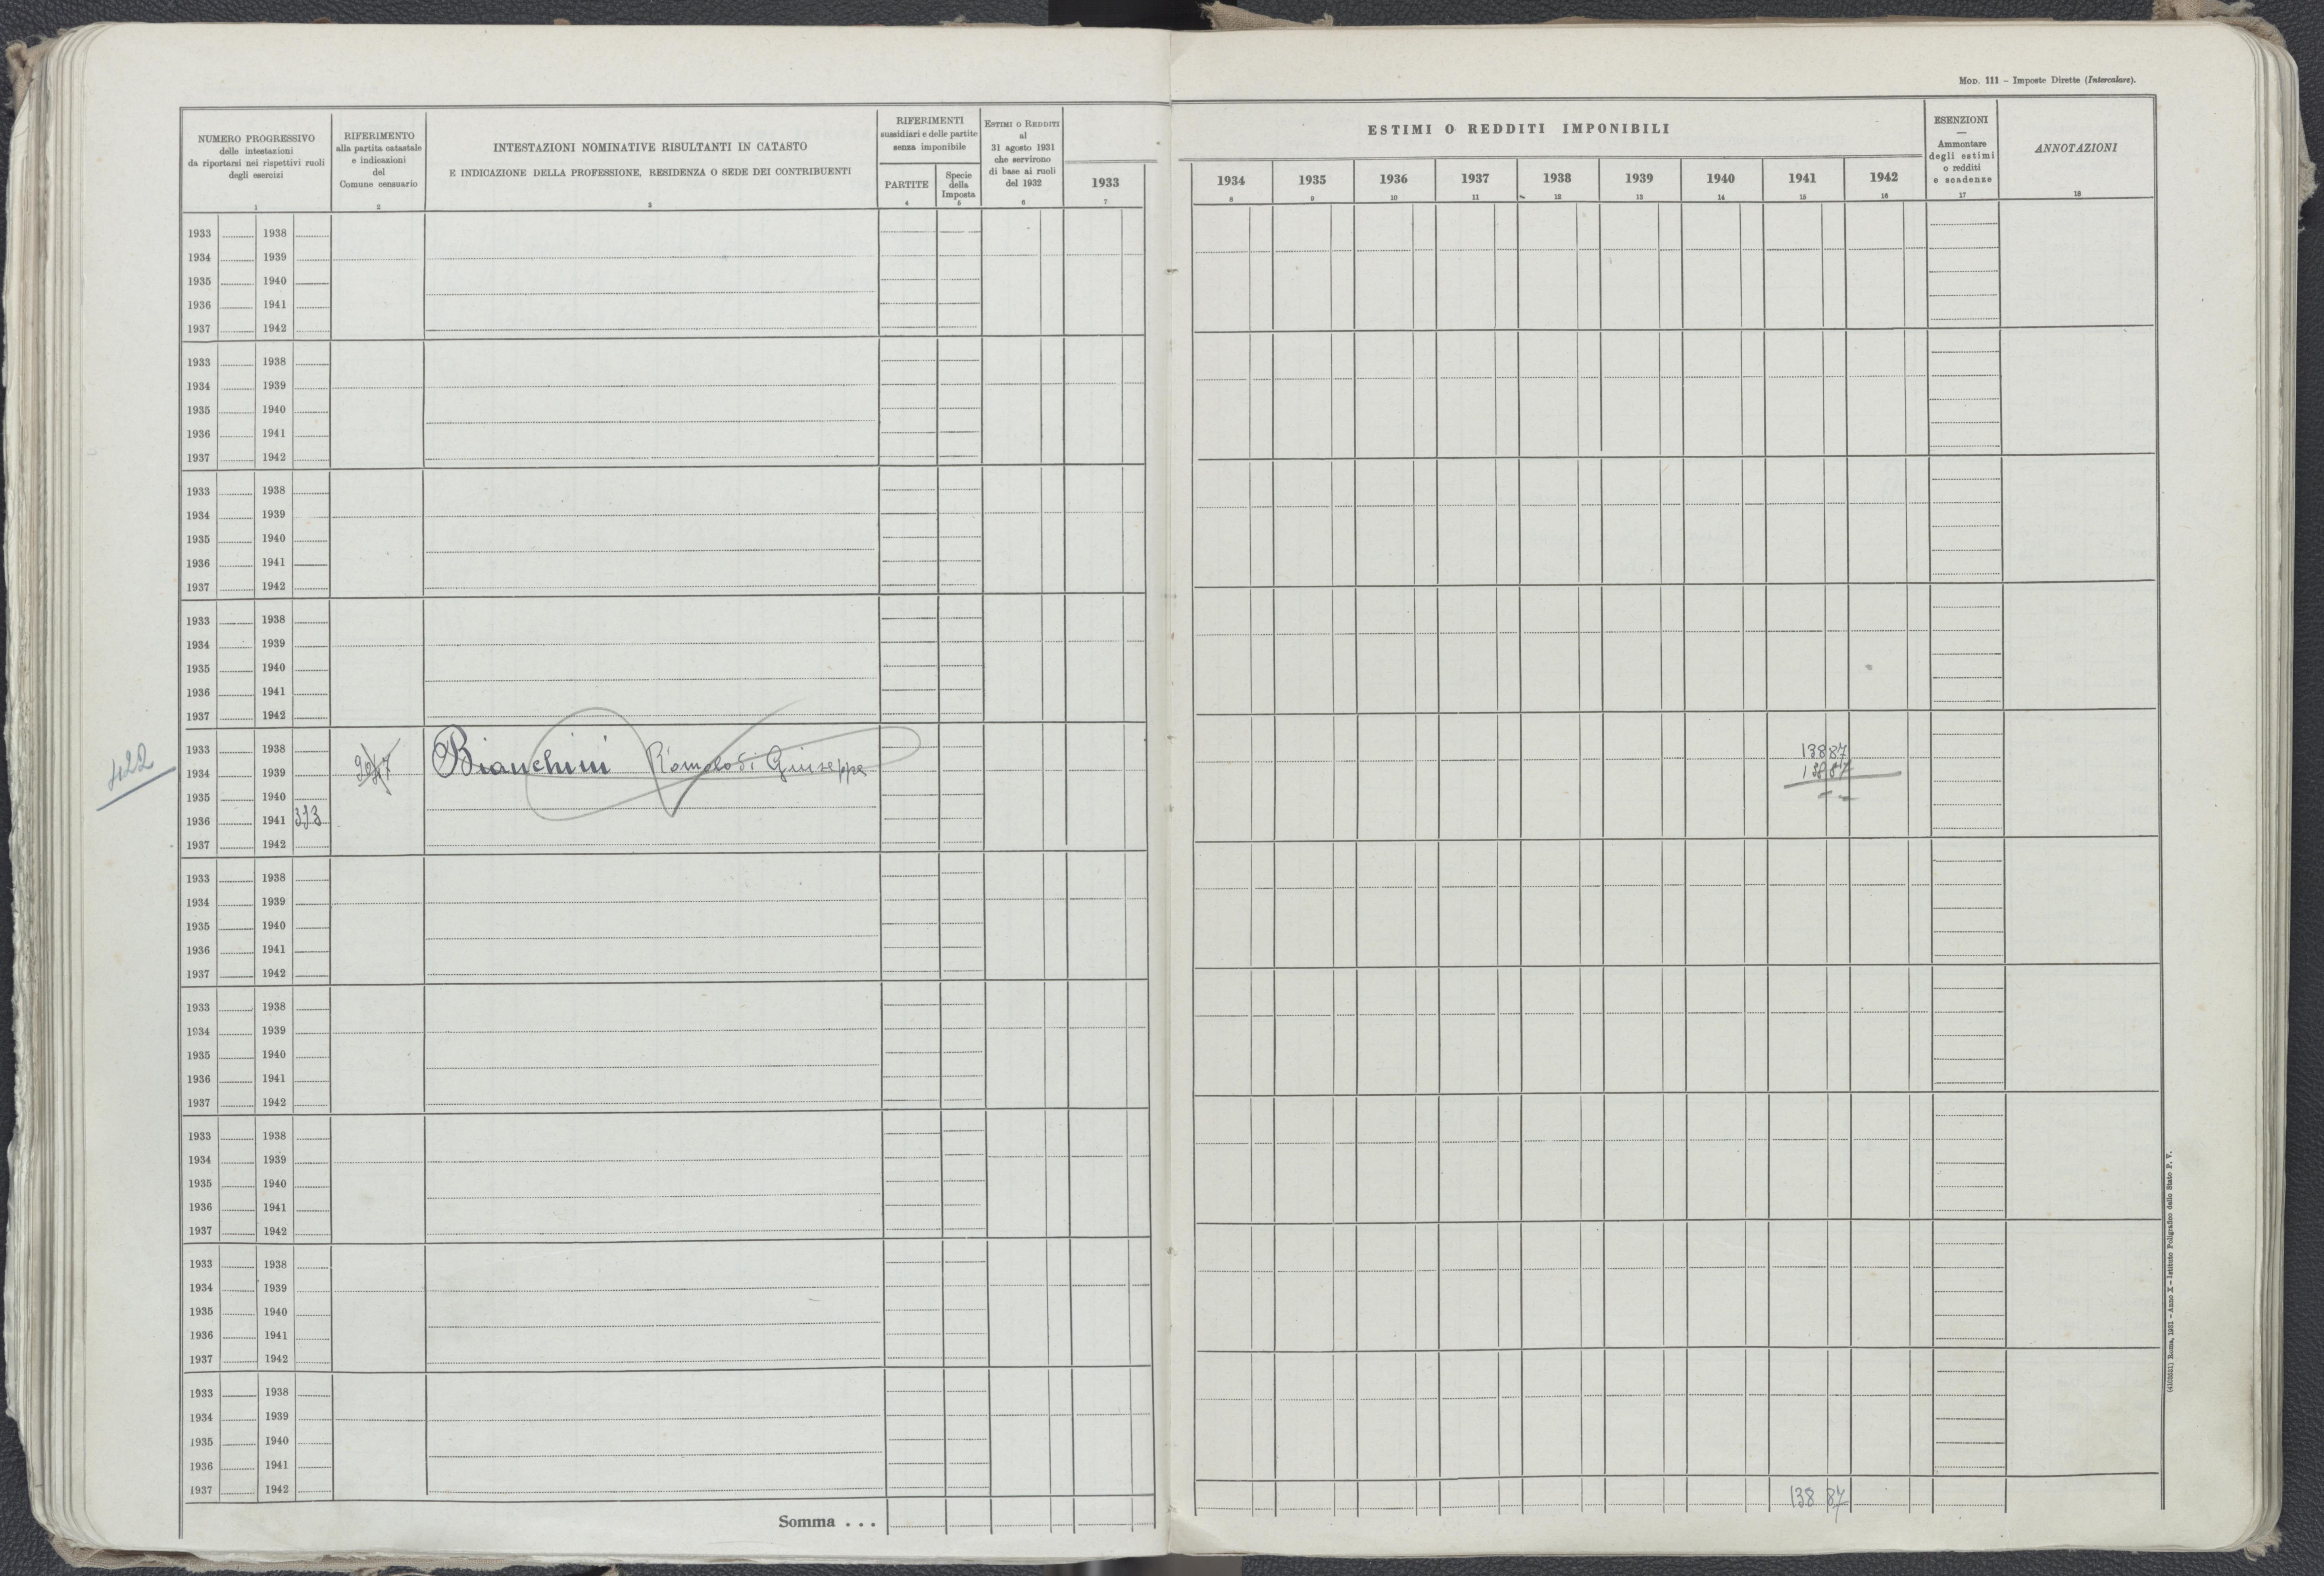 MOD. 111 – Imposte Dirette (Intercalare).
NUMERO PROGRESSIVO
delle intestazioni
da riportarsi nei rispettivi ruoli
degli esercizi
1
RIFERIMENTO
alla partita catastale
e indicazioni
del
Comune censuario
2
INTESTAZIONI NOMINATIVE RISULTANTI IN CATASTO
E INDICAZIONE DELLA PROFESSIONE, RESIDENZA O SEDE DEI CONTRIBUENTI
3
RIFERIMENTI
sussidiari e delle partite
senza imponibile
PARTITE
4
Specie
della
Imposta
5
ESTIMI O REDDITI
al
31 agosto 1931
che servirono
di base ai ruoli
del 1932
6
1933
7
ESTIMI O REDDITI IMPONIBILI
1934 1935 1936 1937 1938 1939 1940 1941 1942
8 9 10 11 12 13 14 15 16
ESENZIONI
—
Ammontare
degli estimi
o redditi
e scadenze
17
ANNOTAZIONI
18
1933 1938
1934 1939
1935 1940
1936 1941
1937 1942
1933 1938
1934 1939
1935 1940
1936 1941
1937 1942
1933 1938
1934 1939
1935 1940
1936 1941
1937 1942
1933 1938
1934 1939
1935 1940
1936 1941
1937 1942
422
1933 1938 138 87
1934 1939 Bianchini Romolo di Giuseppe 138 87
1935 1940
1936 1941
1937 1942
1933 1938
1934 1939
1935 1940
1936 1941
1937 1942
1933 1938
1934 1939
1935 1940
1936 1941
1937 1942
1933 1938
1934 1939
1935 1940
1936 1941
1937 1942
1933 1938
1934 1939
1935 1940
1936 1941
1937 1942
1933 1938
1934 1939
1935 1940
1936 1941
1937 1942
Somma . . . 138 87
Roma, 1931 – Anno X – Istituto Poligrafico dello Stato P. V.